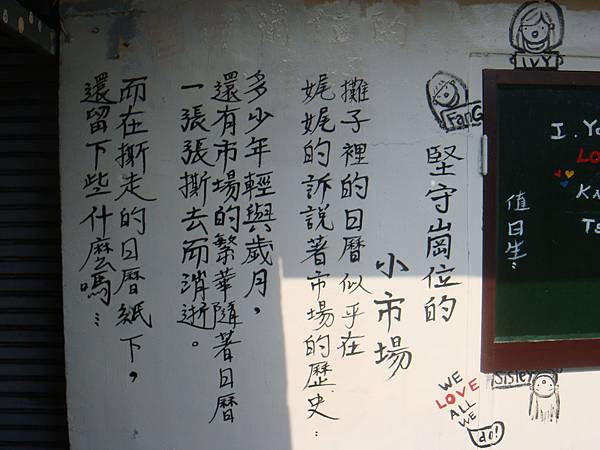 堅守崗位的
小市場
攤子裡的日曆似乎在
娓娓的訴說著市場的歷史:
多少年輕與歲月，
還有市場的繁華隨著日曆
一張張撕去而消逝。
而在撕走的日曆紙下，
還留下些什麼嗎…
IVY
FanG
值日生:
Sisley
WE
LOVE
ALL
WE
do!